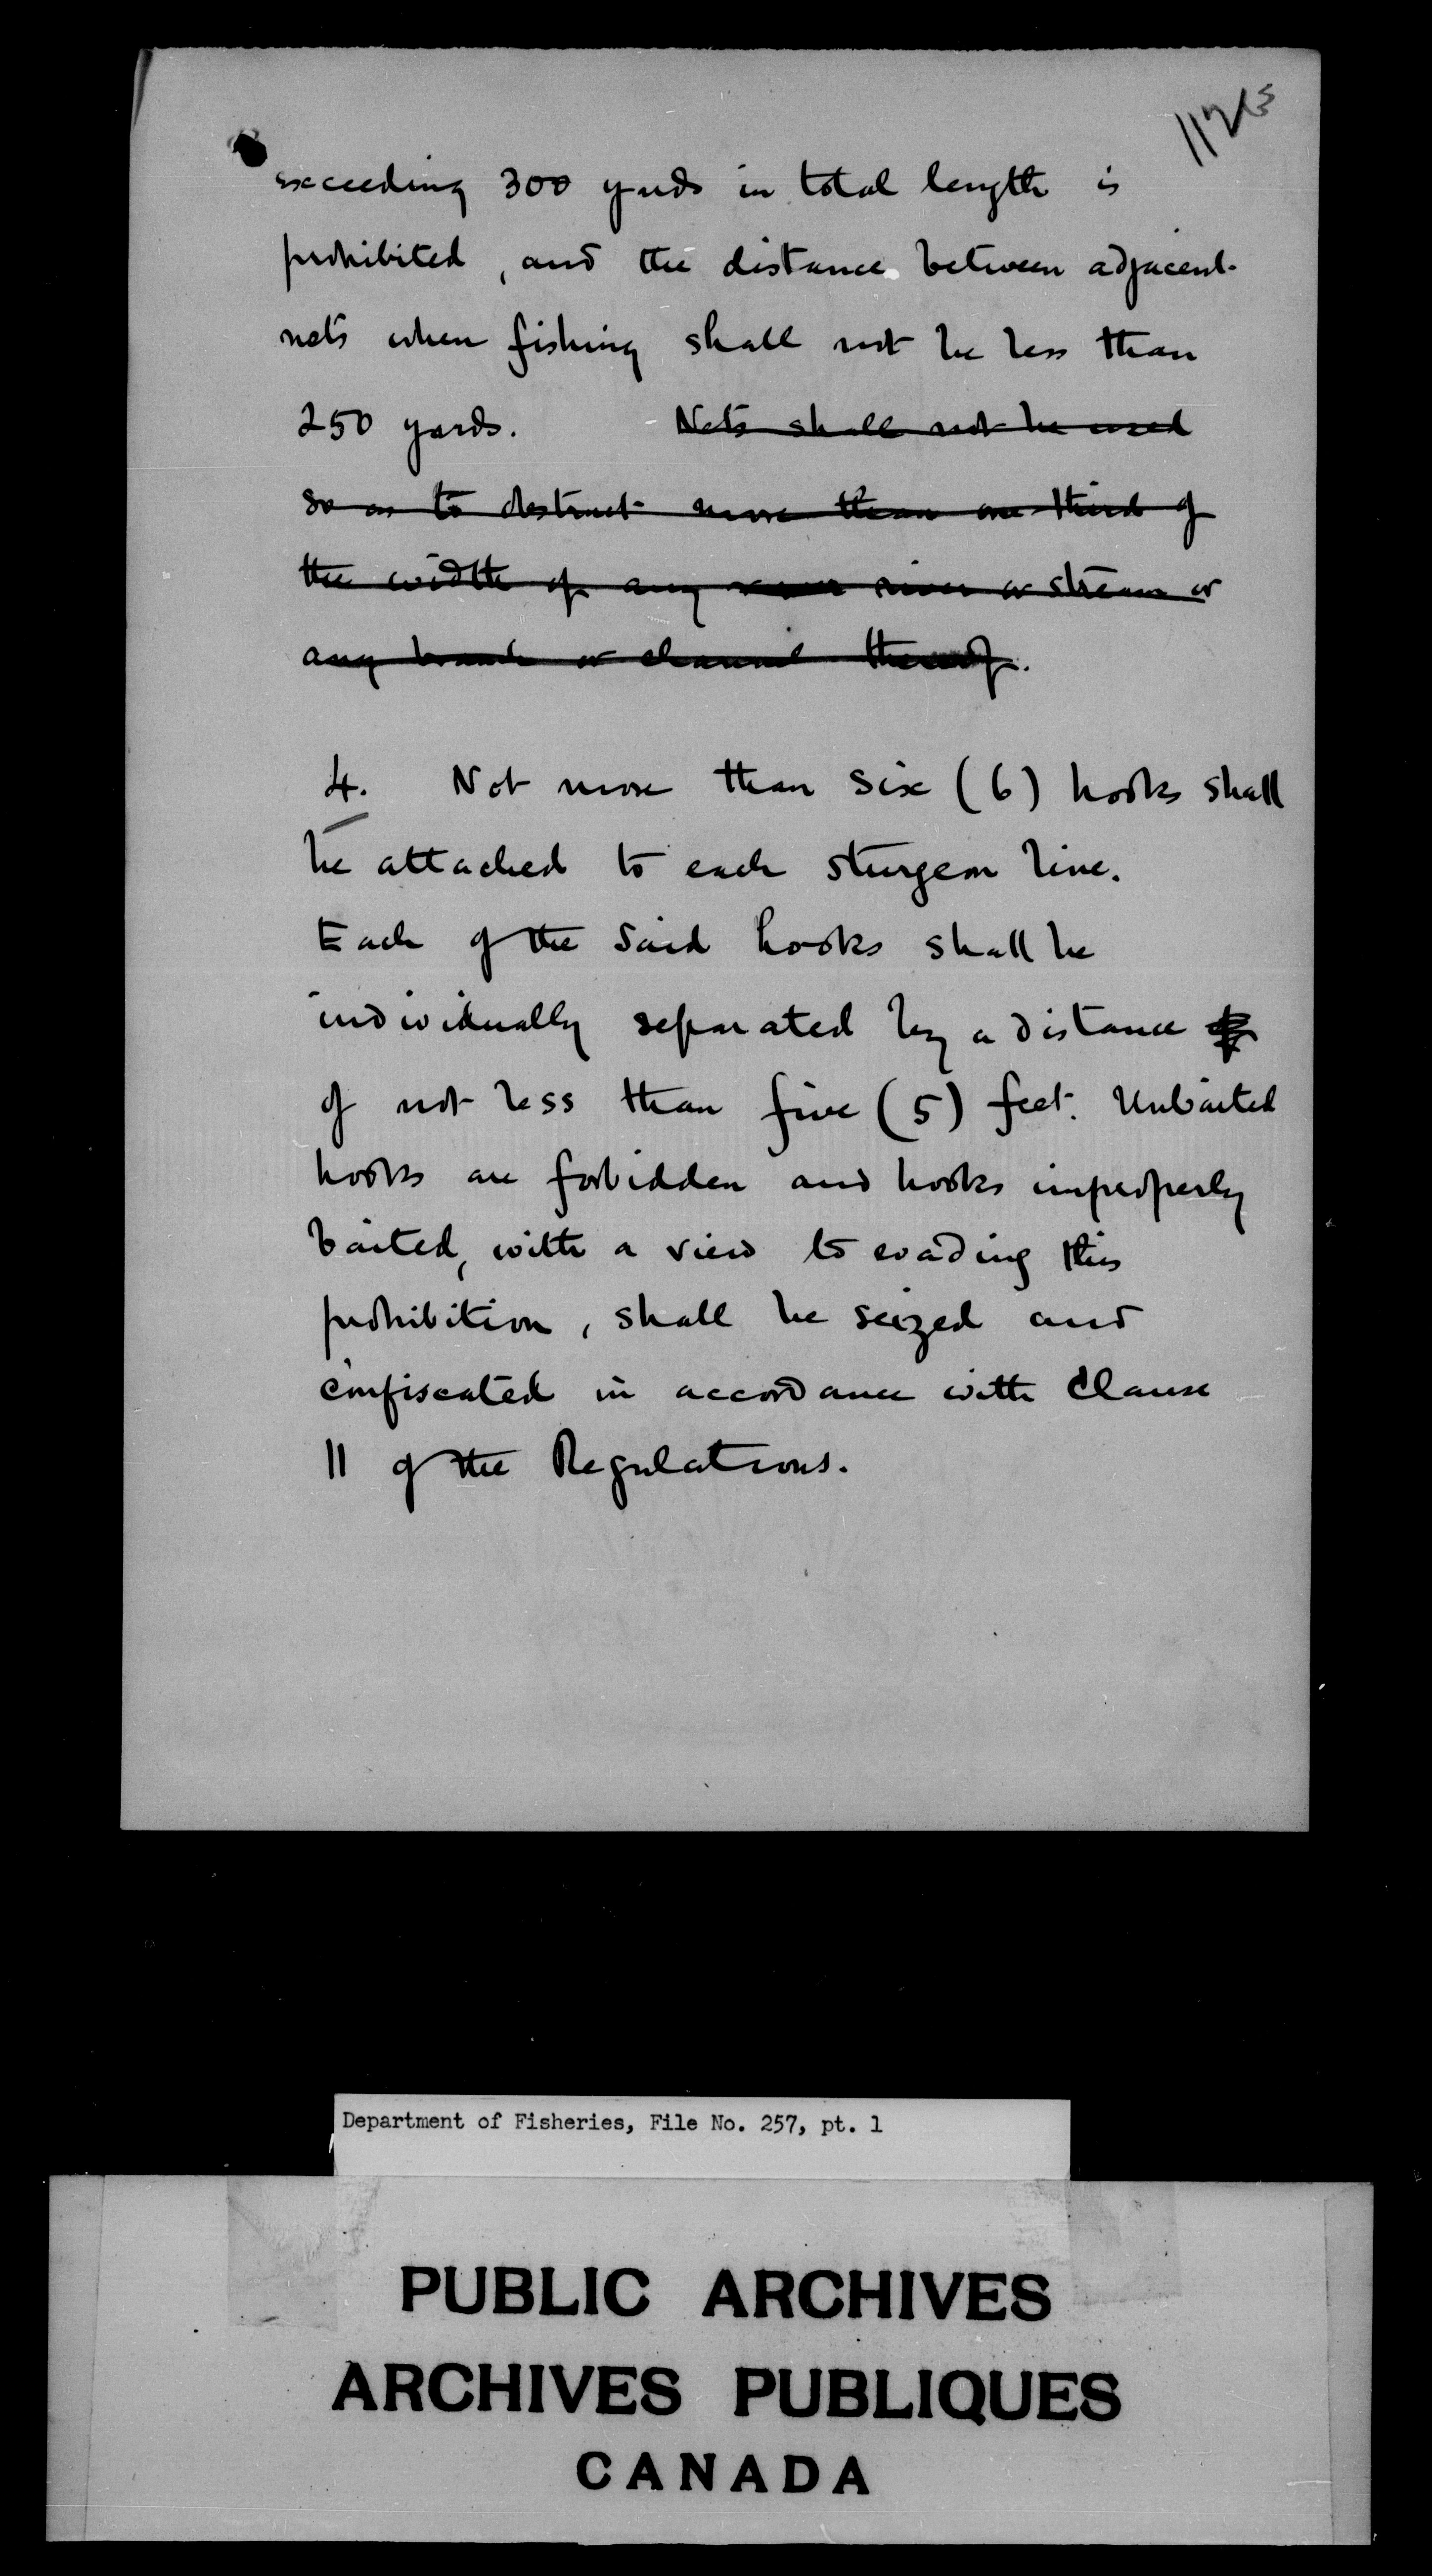 exceeding 300 yards in total length is
prohibited, and the distance between adjacent
nets when fishing shall not be less than
250 yards. Nets shall not be used
so as to obstruct more than one third of
the width of any river or stream or
any branch or channel thereof.
4. Not more than six (6) hooks shall
be attached to each sturgeon line.
Each of the said hooks shall be
individually separated by a distance
of not less than five (5) feet. Unbaited
hooks are forbidden and hooks improperly
baited, with a view to evading this
prohibition, shall be seized and
confiscated in accordance with Clause
11 of the Regulations.
Department of Fisheries, File No. 257, pt. 1
PUBLIC ARCHIVES
ARCHIVES PUBLIQUES
CANADA